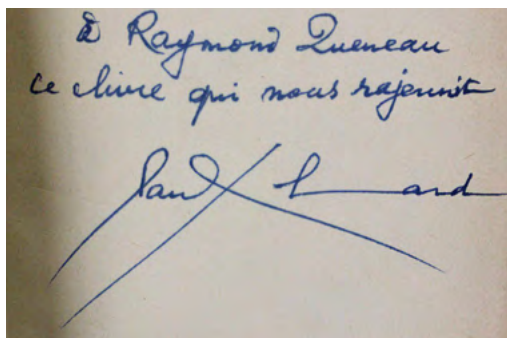 à Raymond Queneau
ce livre qui nous rajeunit
Paul Eluard